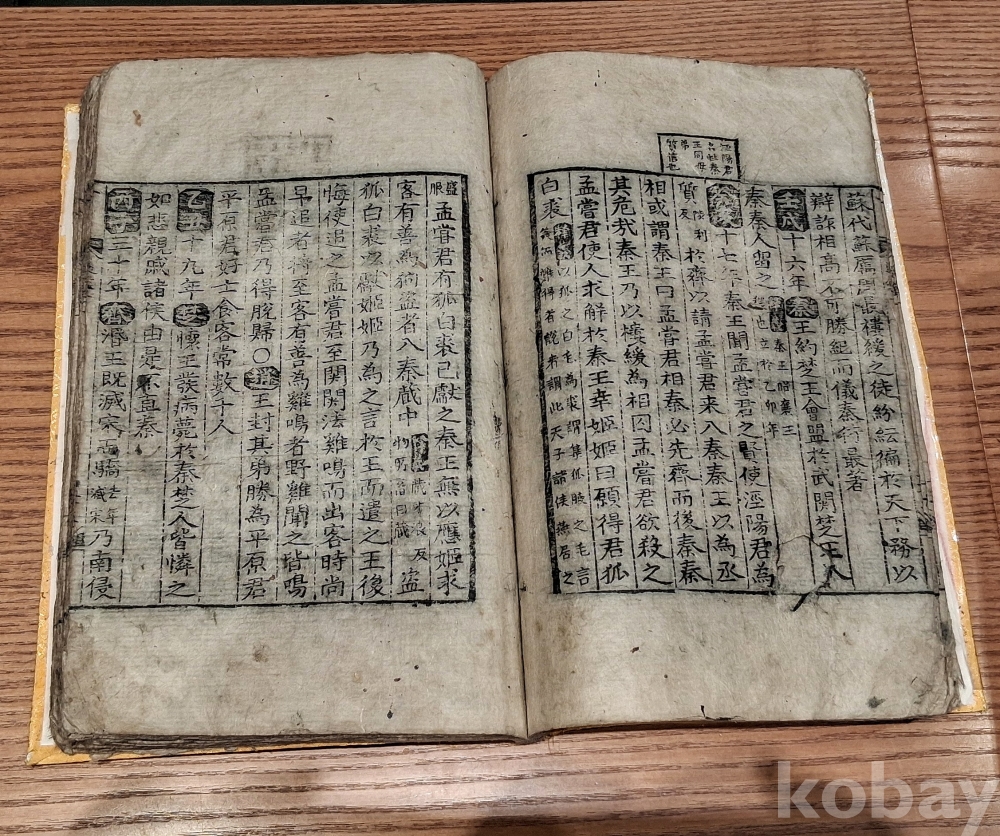 蘇代蘇厲周最樓緩之徒紛紜徧於天下務以
辯詐相高不可勝紀而儀秦衍最著
壬戌十六年秦王約楚王會盟於武關楚王入
秦秦人留之
秦王昭襄王
立於乙卯年
涇陽君
名秦
王同母
弟
質
十七年秦王聞孟嘗君之賢使涇陽君為
質於齊以請孟嘗君来入秦秦王以為丞
相或謂秦王曰孟嘗君相秦必先齊而後秦秦
其危哉秦王乃以樓緩為相囚孟嘗君欲殺之
孟嘗君使人求解於秦王幸姬姬曰願得君狐
白裘
以狐之白毛為裘謂集狐腋之毛言
美而難得者
此天子諸侯燕居之
服
盜孟嘗君有狐白裘已獻之秦王無以應姬求
客有善為狗盜者入秦蔵中
盜
狐白裘以獻姬姬乃為之言於王而遣之王後
悔使追之孟嘗君至關關法雞鳴而出客時尚
早追者將至客有善為雞鳴者野雞聞之皆鳴
孟嘗君乃得脫歸〇趙王封其弟勝為平原君
平原君好士食客常數十人
乙丑十九年楚懷王發病薨於秦楚人皆憐之
如悲親戚諸侯由是不直秦
三十年齊湣王既滅宋而驕
滅宋
乃南侵
kobay